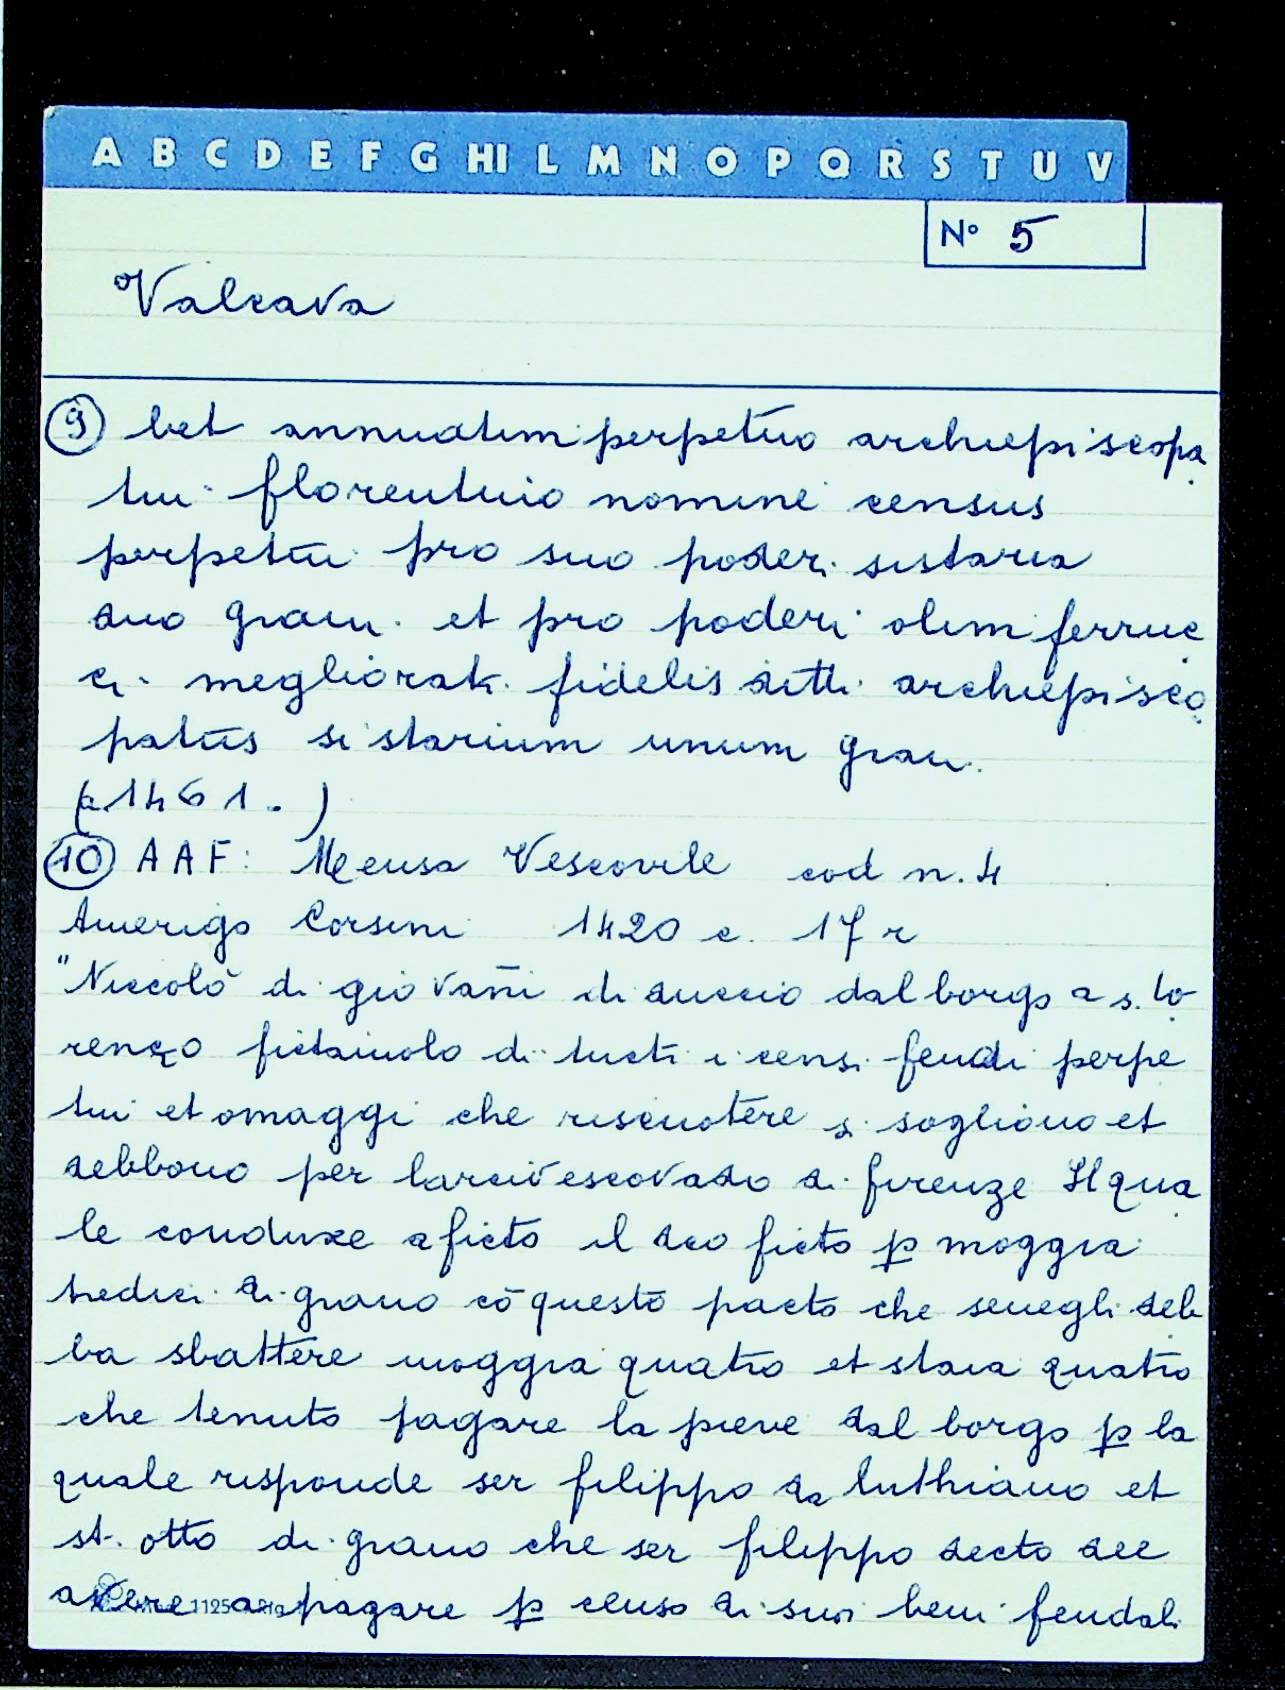 A B C D E F G HI L M N O P Q R S T U V
N° 5
Valcava
9 bet annuatim perpetuo archiepiscopa
tui florentino nomine census
perpetui pro suo poderi sistaria
duo grani. et pro poderi olim ferruc
ci. megliorati. fidelis ditti archiepisco
patus sistarium unum gran.
(a 1461.)
10 AAF: Mensa Vescovile cod n. 4
Amerigo Corsini 1420 c. 17 r
"Niccolò di giovañi di duccio dal borgo a s. lo
renzo fictaiuolo di tucti i censi feudi perpe
tui et omaggi che riscuotere si sogliono et
debbono per larcivescovado di firenze Il qua
le conduxe a ficto il dco ficto p moggia
tredici di grano cō questo pacto che senegli deb
ba sbattere moggia quatro et staia quatro
che tenuto pagare la pieve dal borgo p la
quale risponde ser filippo da luthiano et
st. otto di grano che ser filippo decto dee
avere a pagare p censo di suoi beni feudali